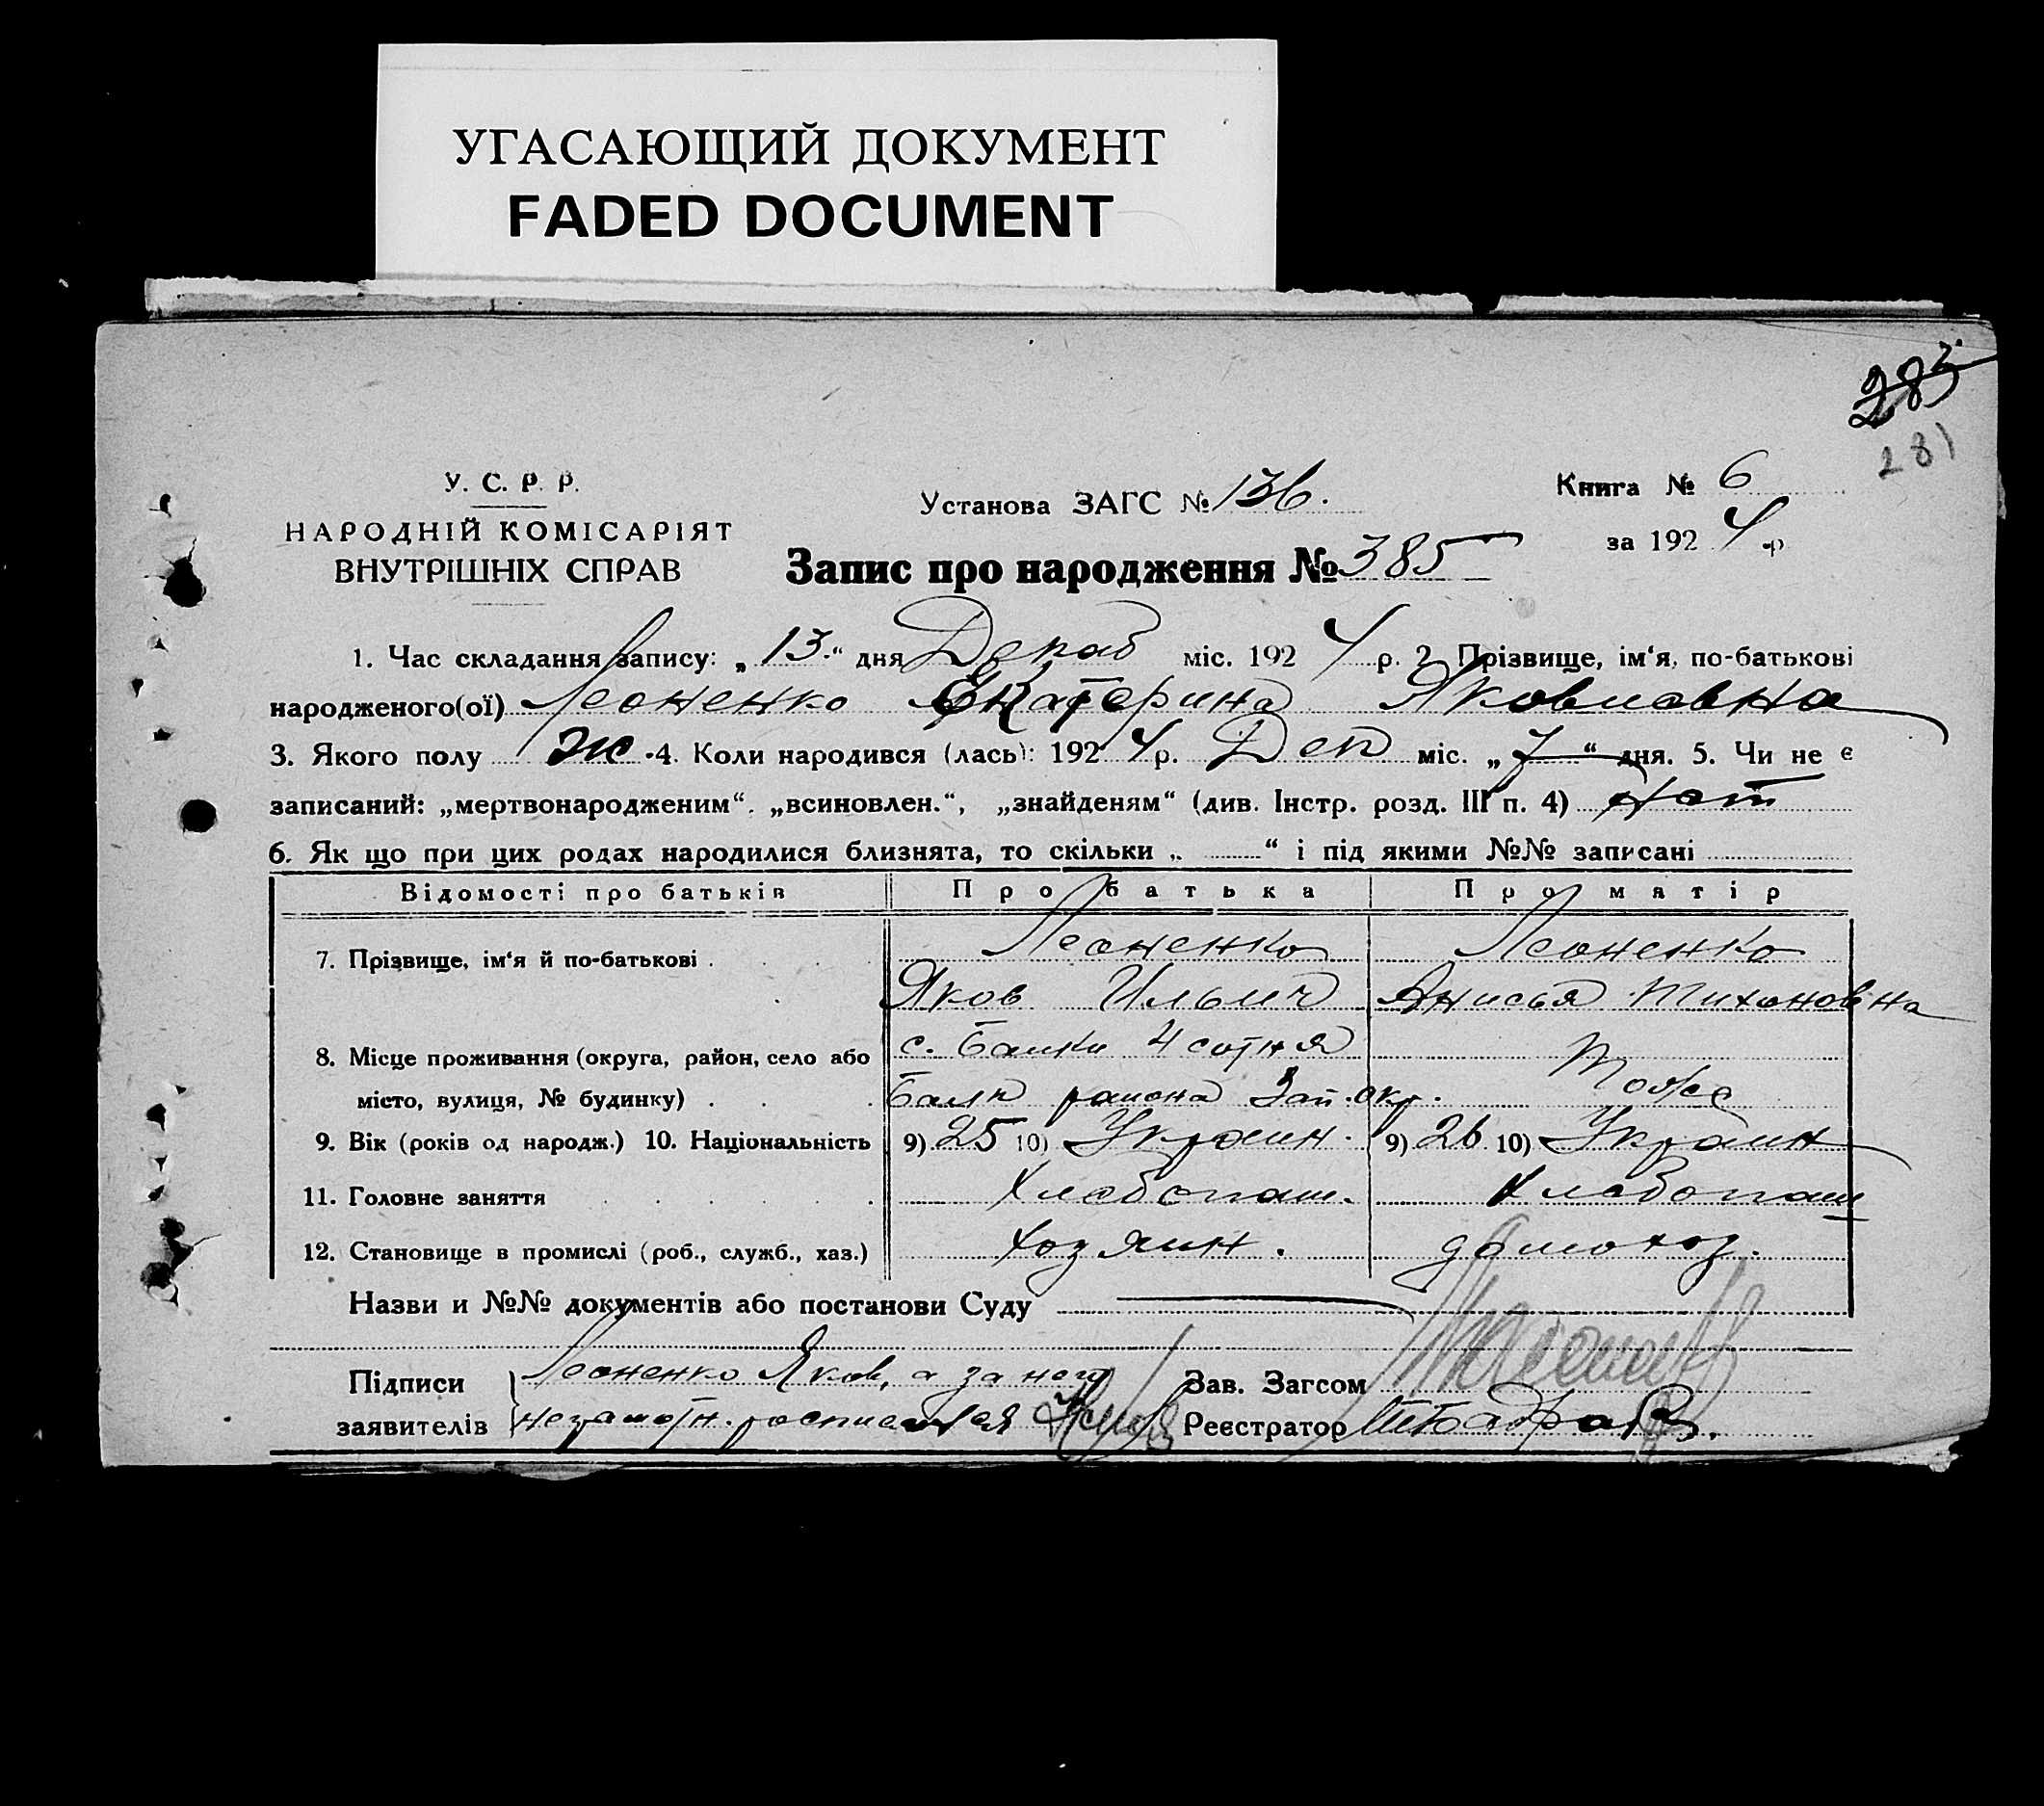 УГАСАЮЩИЙ ДОКУМЕНТ
FADED DOCUMENT
283
281
У. С. Р. Р.
НАРОДНІЙ КОМІСАРІЯТ
ВНУТРІШНІХ СПРАВ
Установа ЗАГС № 136.
Книга № 6
за 1924 р
Запис про народження № 385
1. Час складання запису: „13.“ дня Декаб міс. 1924 р. 2. Прізвище, ім‘я, по-батькові
народженого(ої) Леоненко Екатерина Яковлевна
3. Якого полу ж .4. Коли народився (лась): 1924 р. Дек міс. „7“ дня. 5. Чи не є
записаний: „мертвонародженим“, „всиновлен.“, „знайденям“ (див. Інстр. розд. III п. 4) нет
6. Як що при цих родах народилися близнята, то скільки „ “ і під якими №№ записані
Відомості про батьків Про батька Про матір
7. Прізвище, ім‘я й по-батькові . Леоненко Леоненко
Яков Ильич Анисья Тихоновна
8. Місце проживання (округа, район, село або с. Балки 4 сотня
місто, вулиця, № будинку) . Балк района Зап. окр. Тоже
9. Вік (років од народж.) 10. Національність 9) 25 10) Украин. 9) 26 10) Украин
11. Головне заняття Хлебопаш. Хлебопаш
12. Становище в промислі (роб., служб., хаз.) Хозяин. домохоз.
Назви и №№ документів або постанови Суду
Підписи Леоненко Яков, а за него Зав. Загсом
заявителів неграмотн. росписался Реєстратор